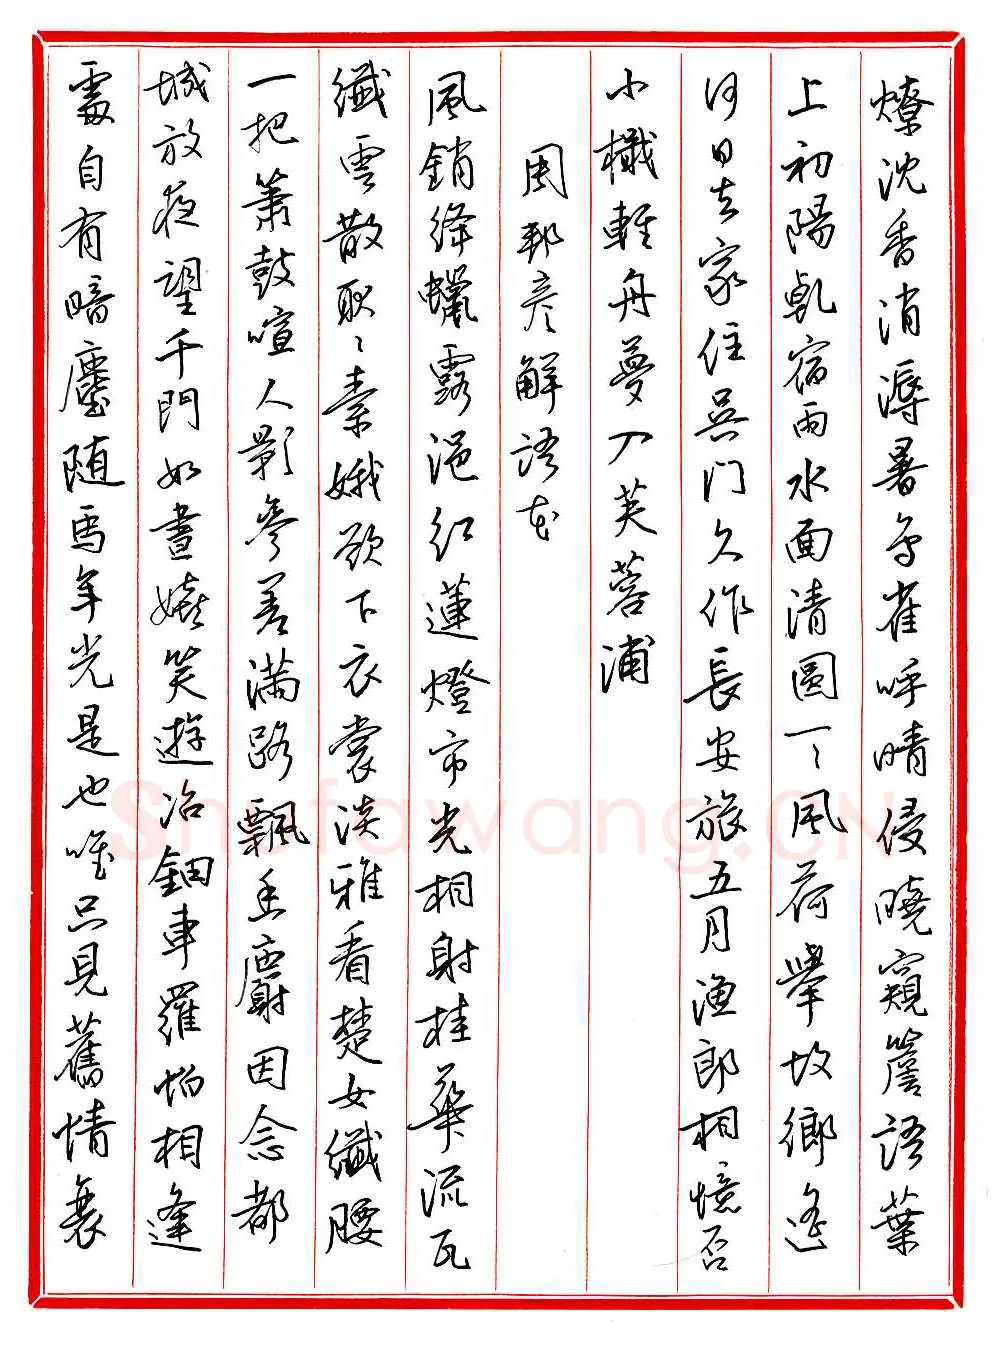 燎沈香消溽暑鸟雀呼晴侵曉窺簷語葉
上初陽乾宿雨水面清圓一一風荷舉故鄉遙
何日去家住吳门久作長安旅五月漁郎相憶否
小檝輕舟夢入芙蓉浦
周邦彦解語花
風銷絳蠟露浥红蓮燈市光相射桂華流瓦
纖雲散耿耿素娥欲下衣裳淡雅看楚女纖腰
一把簫鼓喧人影參差滿路飄香麝因念都
城放夜望千門如晝嬉笑遊冶鈿車羅帕相逢
處自有暗塵随馬年光是也唯只見舊情衰
Shufawang.CN